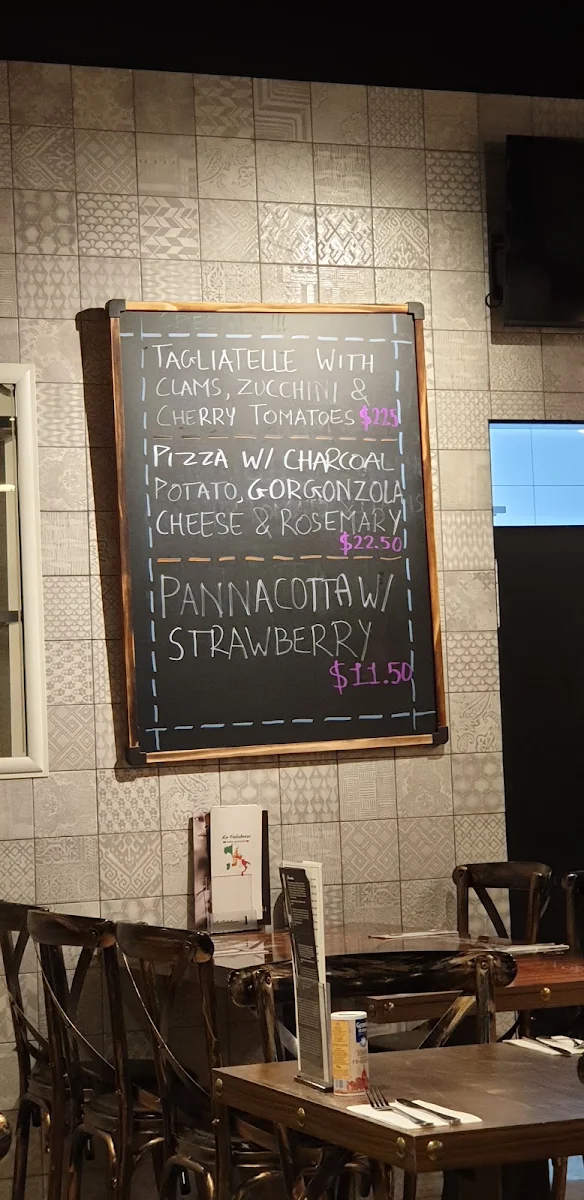 TAGLIATELLE WITH
CLAMS, ZUCCHINI &
CHERRY TOMATOES $225
PIZZA W/ CHARCOAL
POTATO, GORGONZOLA
CHEESE & ROSEMARY
$22.50
PANNACOTTA W/
STRAWBERRY
$11.50